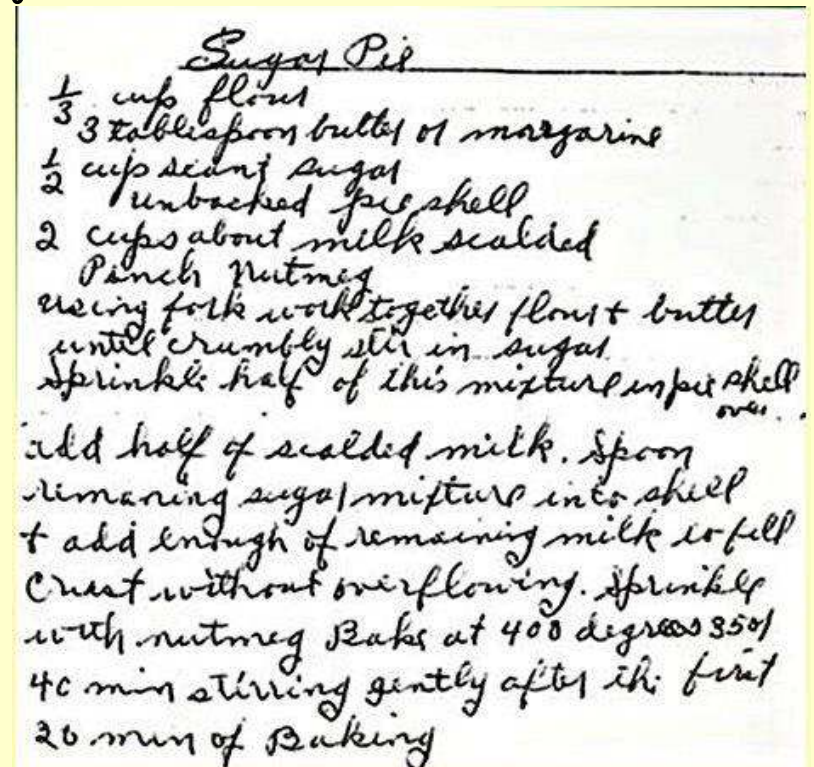 Sugar Pie
1/3 cup flour
3 tablespoon butter or margarine
1/2 cup scant sugar
unbacked pie shell
2 cups about milk scalded
Pinch Nutmeg
using fork work together flour + butter
until crumbly stir in sugar
Sprinkle half of this mixture in pie shell
over
add half of scalded milk. Spoon
remaning sugar mixture into shell
+ add enough of remaining milk to fill
Crust without overflowing. Sprinkle
with nutmeg Bake at 400 degrees 35 or
40 min stirring gently after the first
20 min of Baking